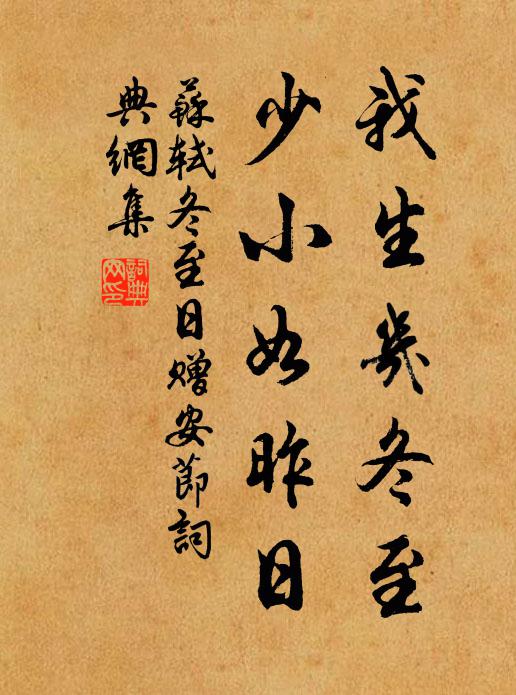 我生幾冬至
少小如昨日
蘇軾冬至日赠安節詞
典網集
詞典
网印